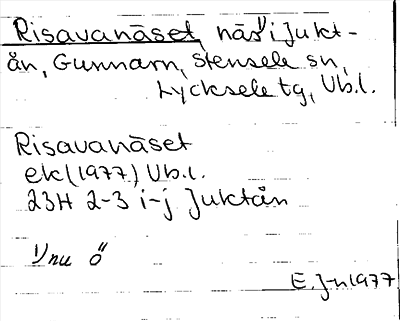 Risavanäset, näs¹⁾ i Jukt-
ån, Gunnarn, Stensele sn,
Lycksele tg, Vb.l.
Risavanäset
ek (1977) Vb.l.
23H 2-3 i-j Juktån
¹⁾ nu ö
E. J-n 1977